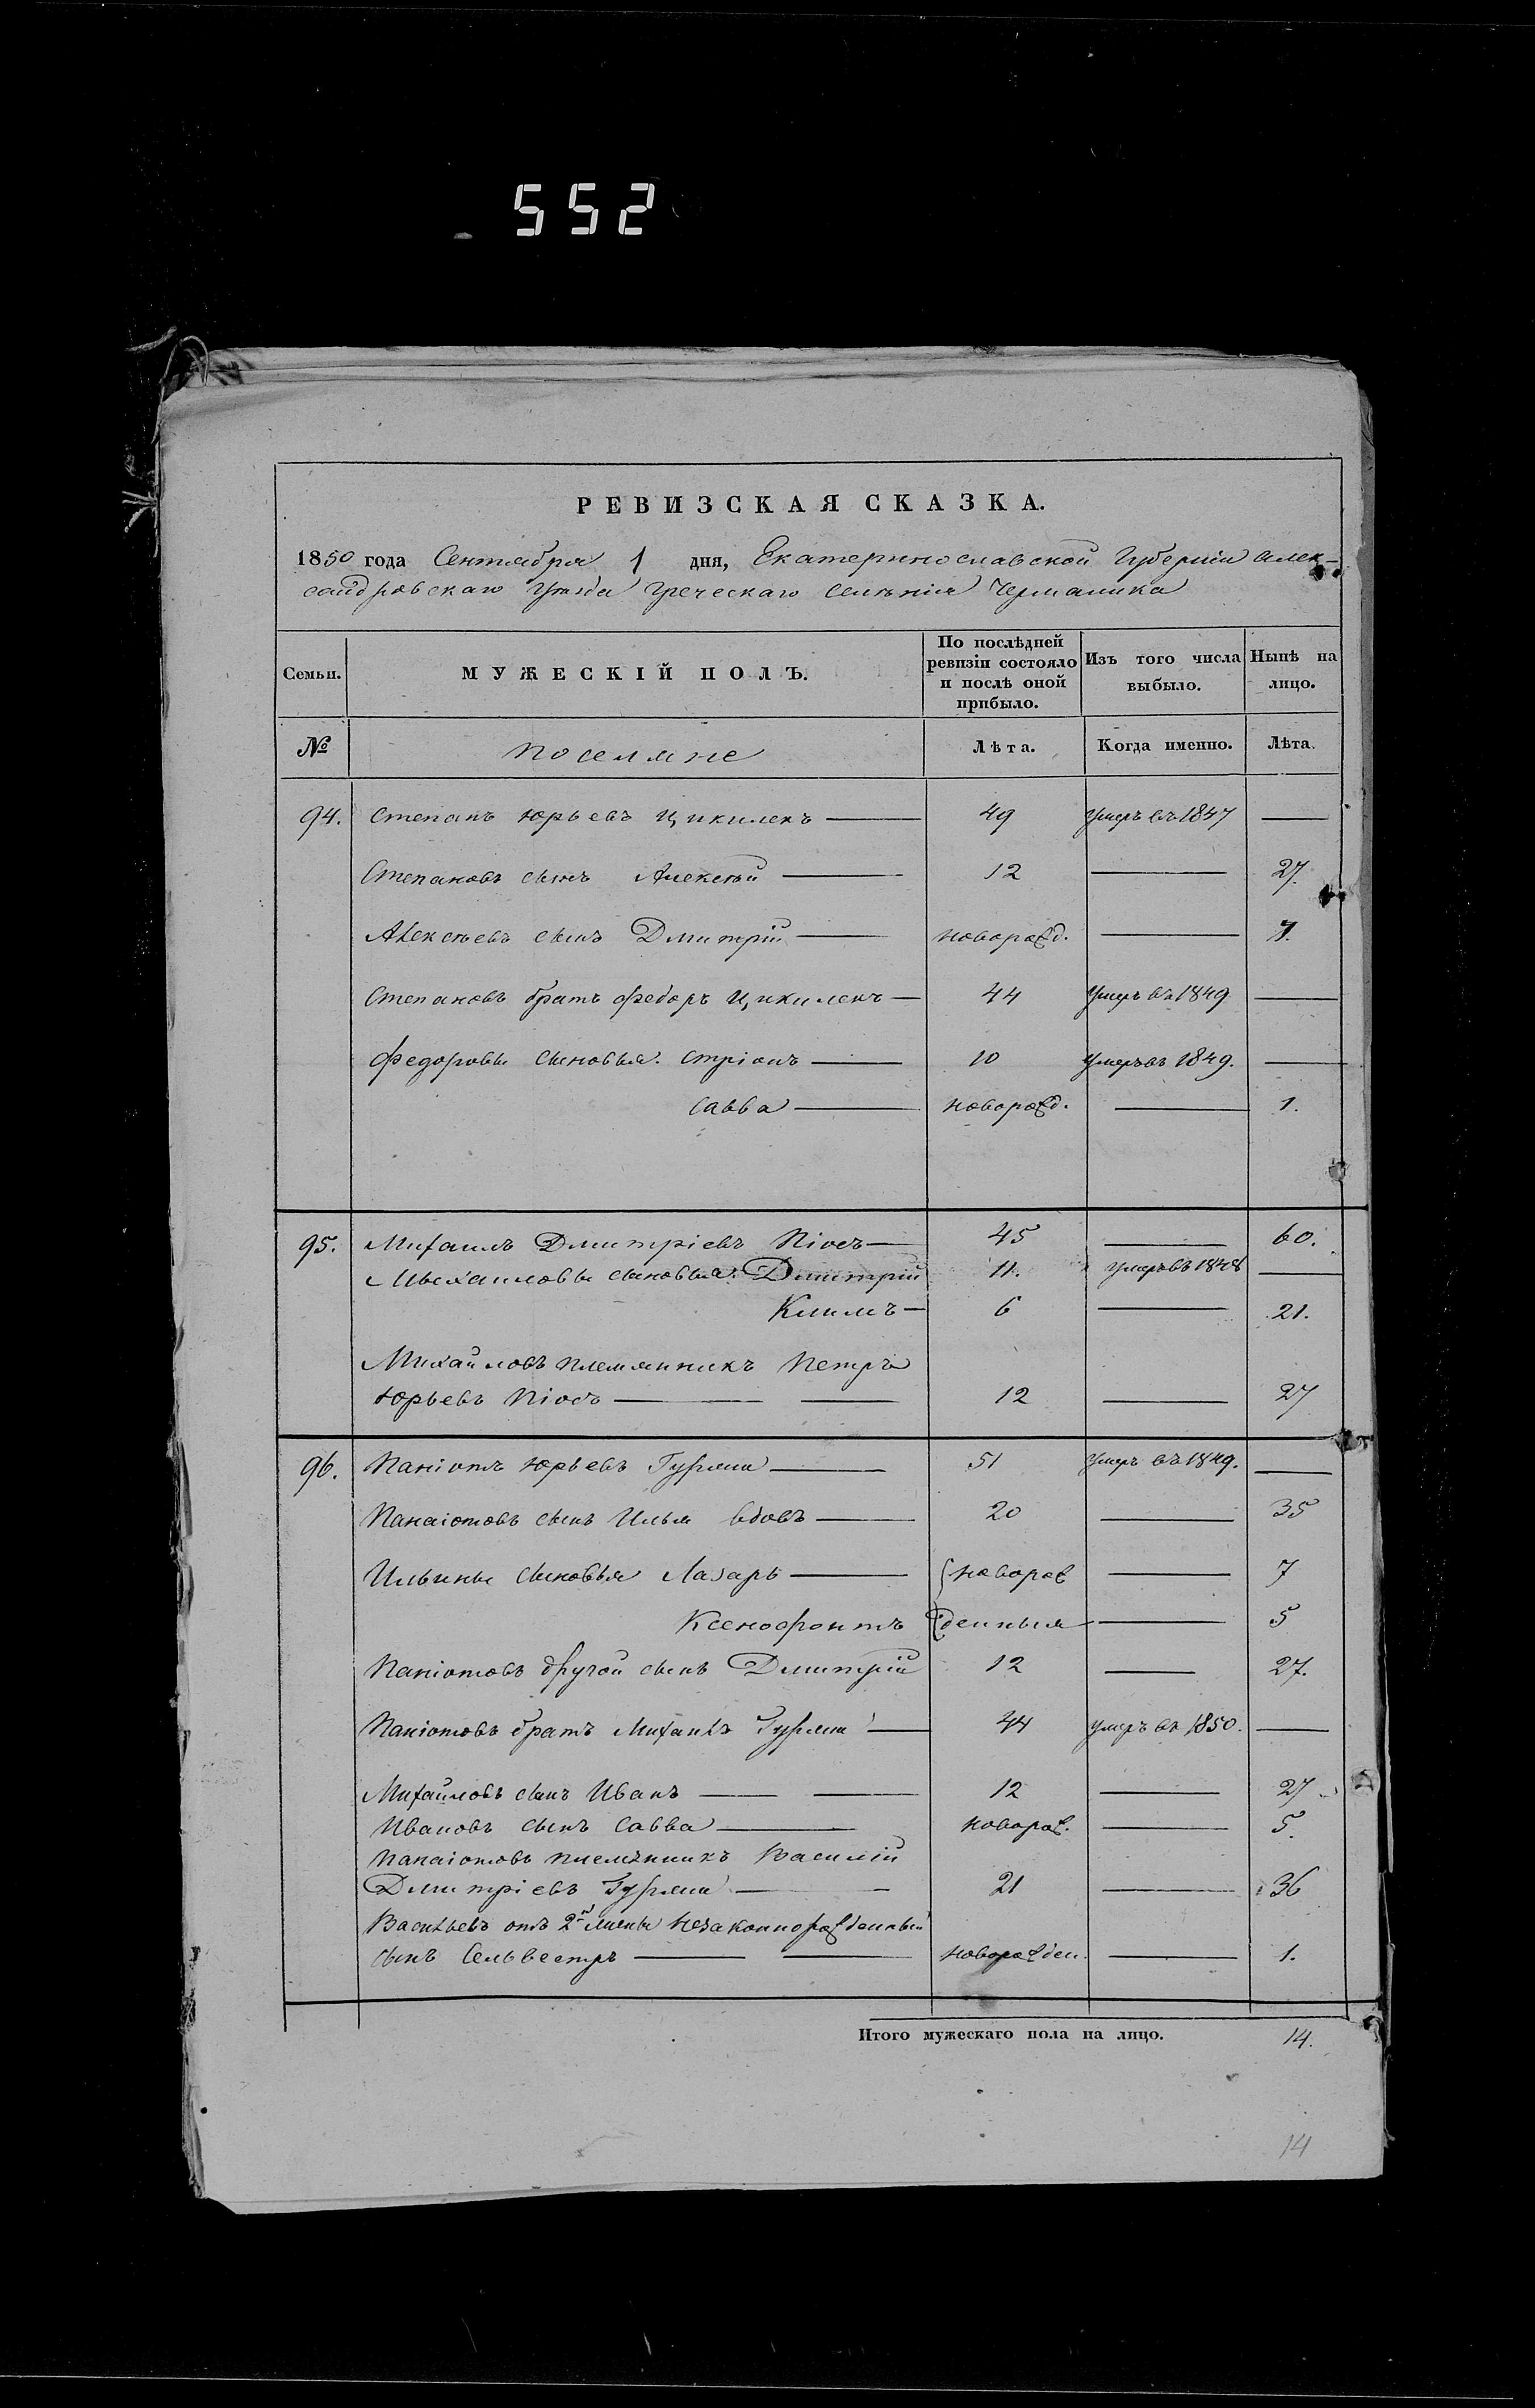 552
РЕВИЗСКАЯ СКАЗКА.
1850 года Сентября 1 дня, Екатеринославской Губернiи Алек-
сандровскаго уѣзда Греческаго селѣнiя Чермалика
Семьи. МУЖЕСКIЙ ПОЛЪ. По послѣдней ревизiи состояло и послѣ оной прибыло. Изъ того числа выбыло. Нынѣ на лицо.
№ Поселяне Лѣта. Когда именно. Лѣта.
94. Степанъ Юрьевъ Цикилекъ 49 умеръ въ 1847
Степановъ сынъ Алексѣй 12 27.
Алексѣевъ сынъ Дмитрiй новорожд. 7.
Степановъ братъ Федоръ Цикилекъ 44 умеръ въ 1849
Федоровы сыновья: Стрiонъ 10 умеръ въ 1849.
Савва новорожд. 1.
95. Михаилъ Дмитрiевъ Пiосъ 45 60.
Михаиловы сыновья: Дмитрiй 11. умеръ въ 1848
Климъ 6 21.
Михайловъ племянникъ Петръ
Юрьевъ Пiосъ 12 27
96. Панiотъ Юрьевъ 51 умеръ въ 1849.
Панаiотовъ сынъ Илья вдовъ 20 35
Ильины сыновья Лазарь новорож 7
Ксенофонтъ денныя 5
Панiотовъ другой сынъ Дмитрiй 12 27.
Панiотовъ братъ Михаилъ 44 умеръ въ 1850.
Михайловъ сынъ Иванъ 12 27
Ивановъ сынъ Савва новорож. 5.
Панаiотовъ племянникъ Василiй
Дмитрiевъ 21 36
Васильевъ отъ 2й жены незаконнорожденный
сынъ Сельвестръ новорожден. 1.
Итого мужескаго пола на лицо. 14.
14